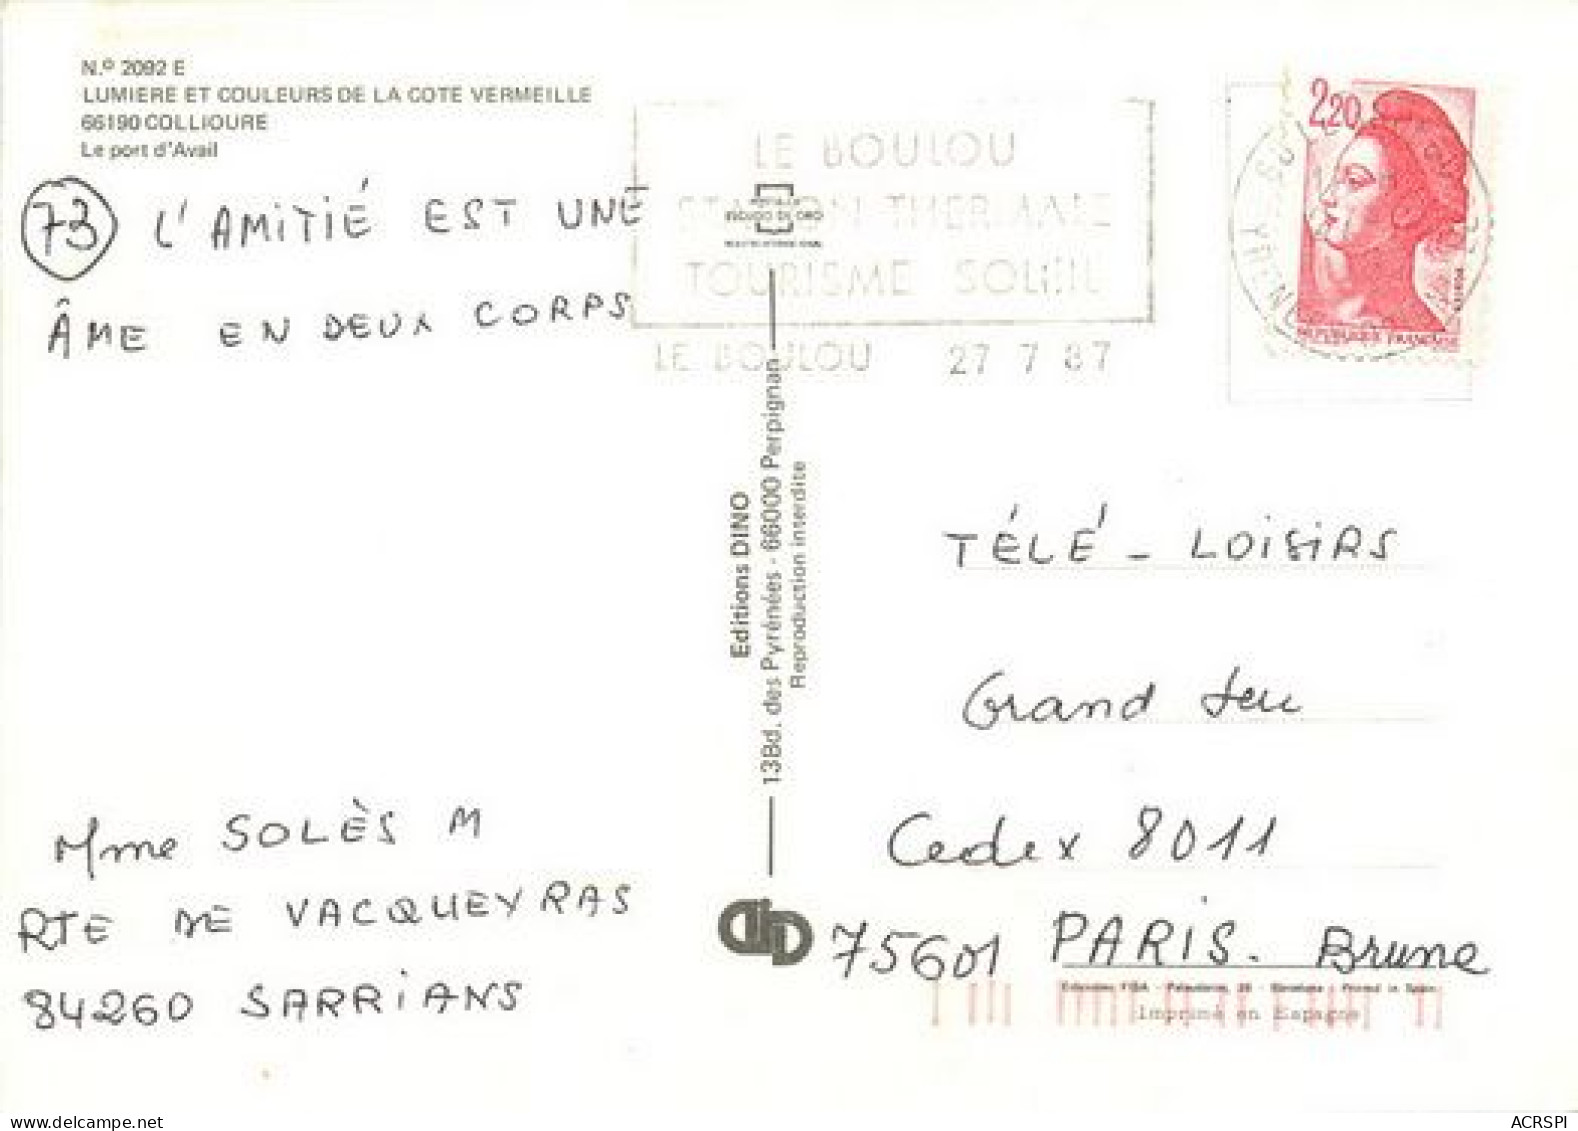 N.º 2092 E
LUMIERE ET COULEURS DE LA COTE VERMEILLE
66190 COLLIOURE
Le port d'Avail
73 L'AMITIÉ EST UNE
ÂME EN DEUX CORPS
Mme SOLÈS M
RTE DE VACQUEYRAS
84260 SARRIANS
LE BOULOU
STATION THERMALE
TOURISME SOLEIL
LE BOULOU 27 7 87
ESCUDO DE ORO
Editions DINO
13Bd. des Pyrénées - 66000 Perpignan
Reproduction interdite
2,20
REPUBLIQUE FRANÇAISE
TÉLÉ - LOISIRS
Grand Jeu
Cedex 8011
75601 PARIS. Brune
Imprimé en Espagne
ACRSPI